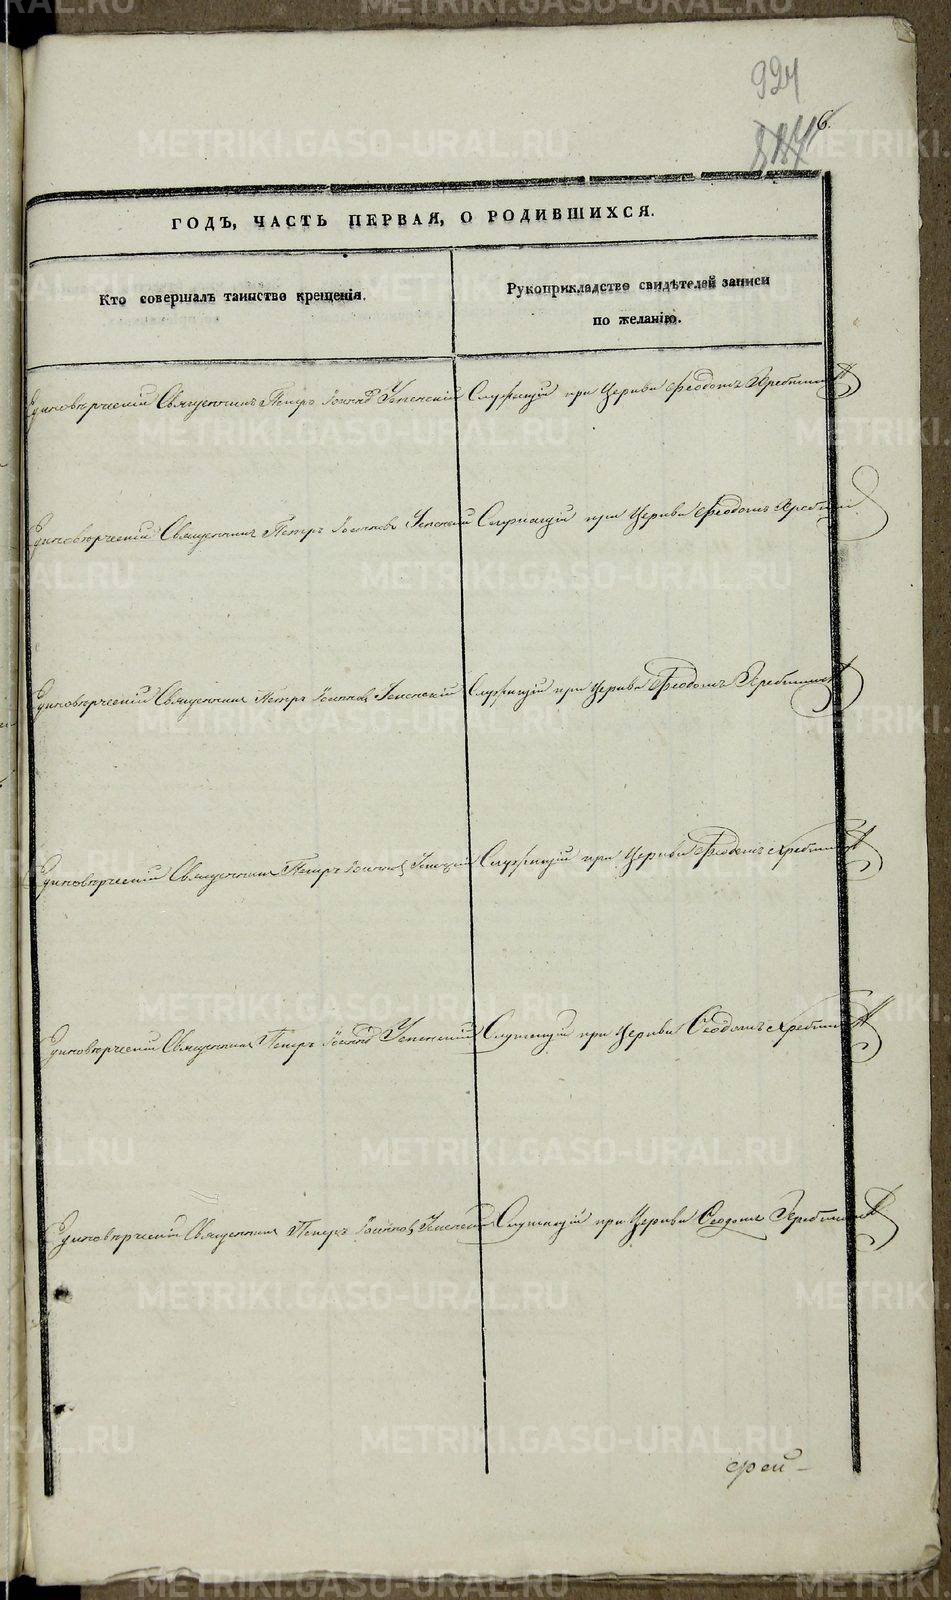 924
6.
ГОДЪ, ЧАСТЬ ПЕРВАЯ, О РОДИВШИХСЯ.
Кто совершалъ таинство крещенія.
Рукоприкладство свидѣтелей записи
по желанію.
Единовѣрческій Священникъ Петръ Іоаннов Успенскій Служащій при Церкви Феодотъ
Единовѣрческій Священникъ Петръ Іоаннов Успенскій Служащій при Церкви Феодотъ
Единовѣрческій Священникъ Петръ Іоаннов Успенскій Служащій при Церкви Феодотъ
Единовѣрческій Священникъ Петръ Іоаннов Успенскій Служащій при Церкви Феодотъ
Единовѣрческій Священникъ Петръ Іоаннов Успенскій Служащій при Церкви Ѳеодотъ
Единовѣрческій Священникъ Петръ Іоаннов Успенскій Служащій при Церкви Ѳеодотъ
METRIKI.GASO-URAL.RU